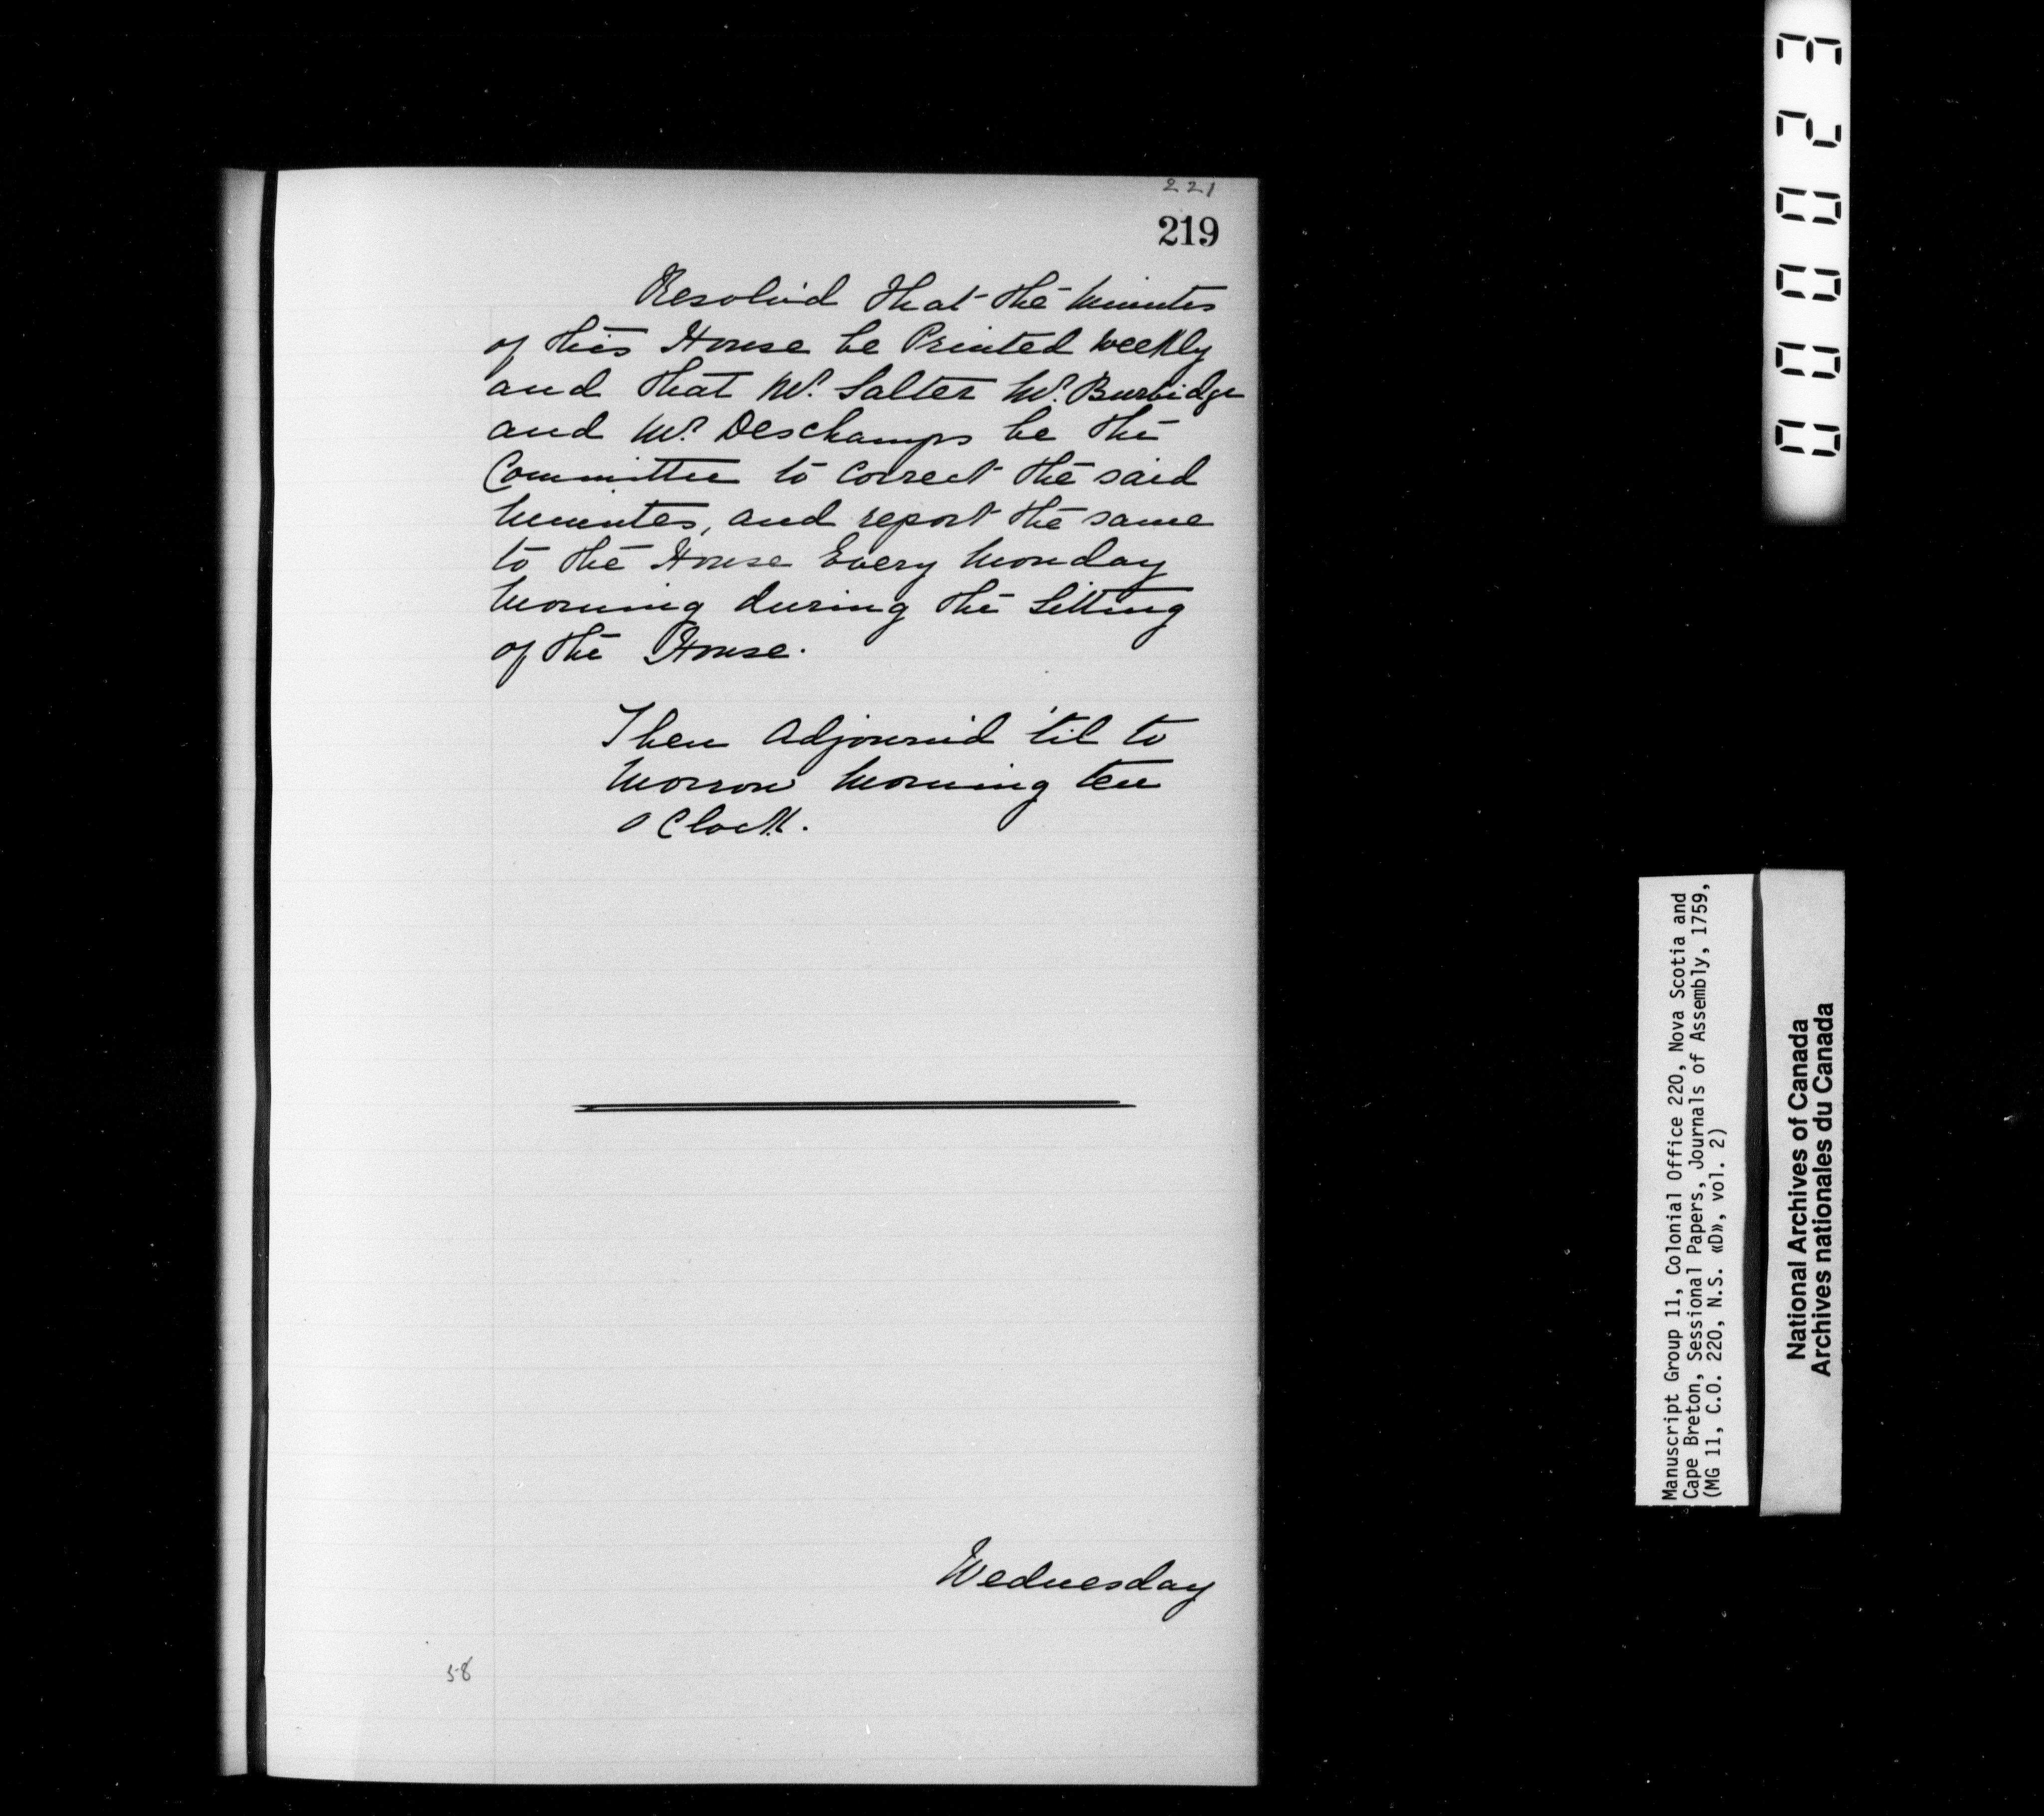 221
219
Resolv'd that the Minutes
of this House be Printed weekly
and that Mr. Salter Mr. Burbidge
and Mr. Deschamps be the
Committee to Correct the said
Minutes, and report the same
to the House Every Monday
Morning during the Sitting
of the House.
Then Adjourn'd 'til to
Morrow Morning ten
O Clock.
Wednesday
58
000023
Manuscript Group 11, Colonial Office 220, Nova Scotia and
Cape Breton, Sessional Papers, Journals of Assembly, 1759,
(MG 11, C.O. 220, N.S. «D», vol. 2)
National Archives of Canada
Archives nationales du Canada